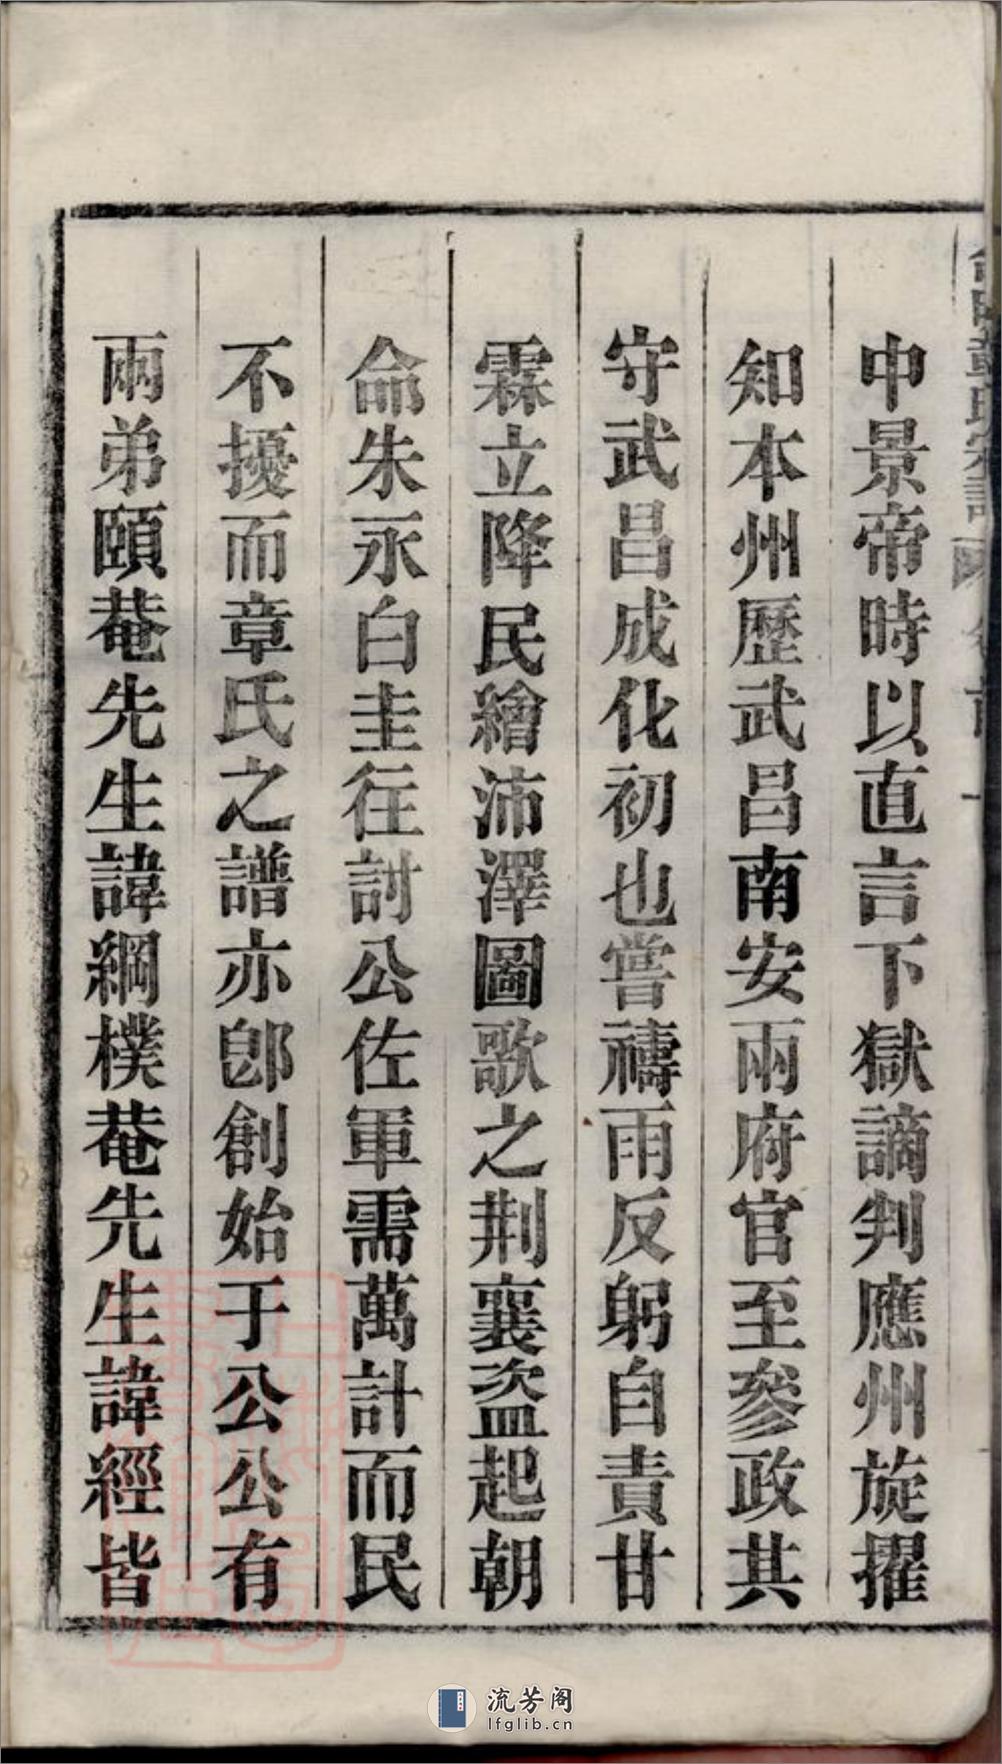 中景帝時以直言下獄謫判應州旋擢
知本州歷武昌南安兩府官至參政其
守武昌成化初也嘗禱雨反躬自責甘
霖立降民繪沛澤圖歌之荆襄盜起朝
命朱永白圭往討公佐軍需萬計而民
不擾而章氏之譜亦卽創始于公公有
兩弟頤菴先生諱綱樸菴先生諱經皆
流芳阁
lfglib.cn